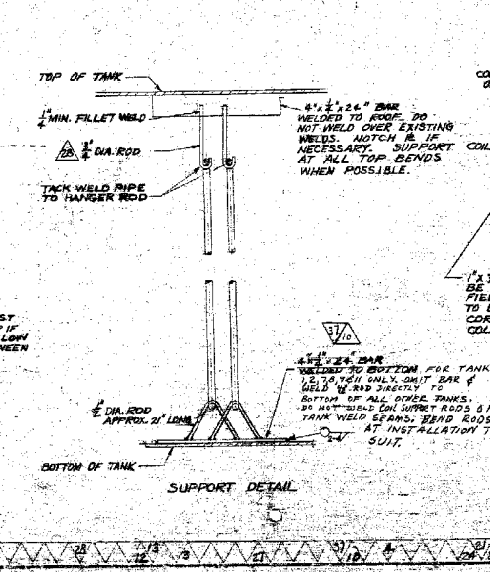 TOP OF TANK
1/4" MIN. FILLET WELD
28 3/4" DIA. ROD
TACK WELD PIPE
TO HANGER ROD
4" x 1/4" x 24" BAR
WELDED TO ROOF. DO
NOT WELD OVER EXISTING
WELDS. NOTCH IF
NECESSARY. SUPPORT COIL
AT ALL TOP BENDS
WHEN POSSIBLE.
CO
1" x
BE
FIEL
TO
COR
COL
ST
IF
LOW
WEEN
37
10
4 x 1/4" x 24" BAR
WELDED TO BOTTOM FOR TANK
1,2,7,8,9 & 11 ONLY. OMIT BAR &
WELD ROD DIRECTLY TO
BOTTOM OF ALL OTHER TANKS.
DO NOT WELD COIL SUPPORT RODS
TANK WELD SEAMS. BEND RODS
AT INSTALLATION T
SUIT.
1/2" DIA. ROD
APPROX. 21" LONG
2-4
BOTTOM OF TANK
SUPPORT DETAIL
28 13 12 3 27 37 10